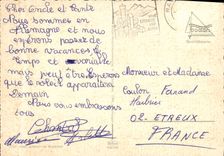 Cher Oncle et Tante
Nous sommes en
Allemagne et nous
espérons passer de
bonne vacances. Le
temps et
mais peut être Espérons
que le soleil apparaîtra
Demain
Nous vous embrassons
tous
Chantal
Maurice
Monsieur et Madame
Coulon Fernand
02. ETREUX
FRANCE